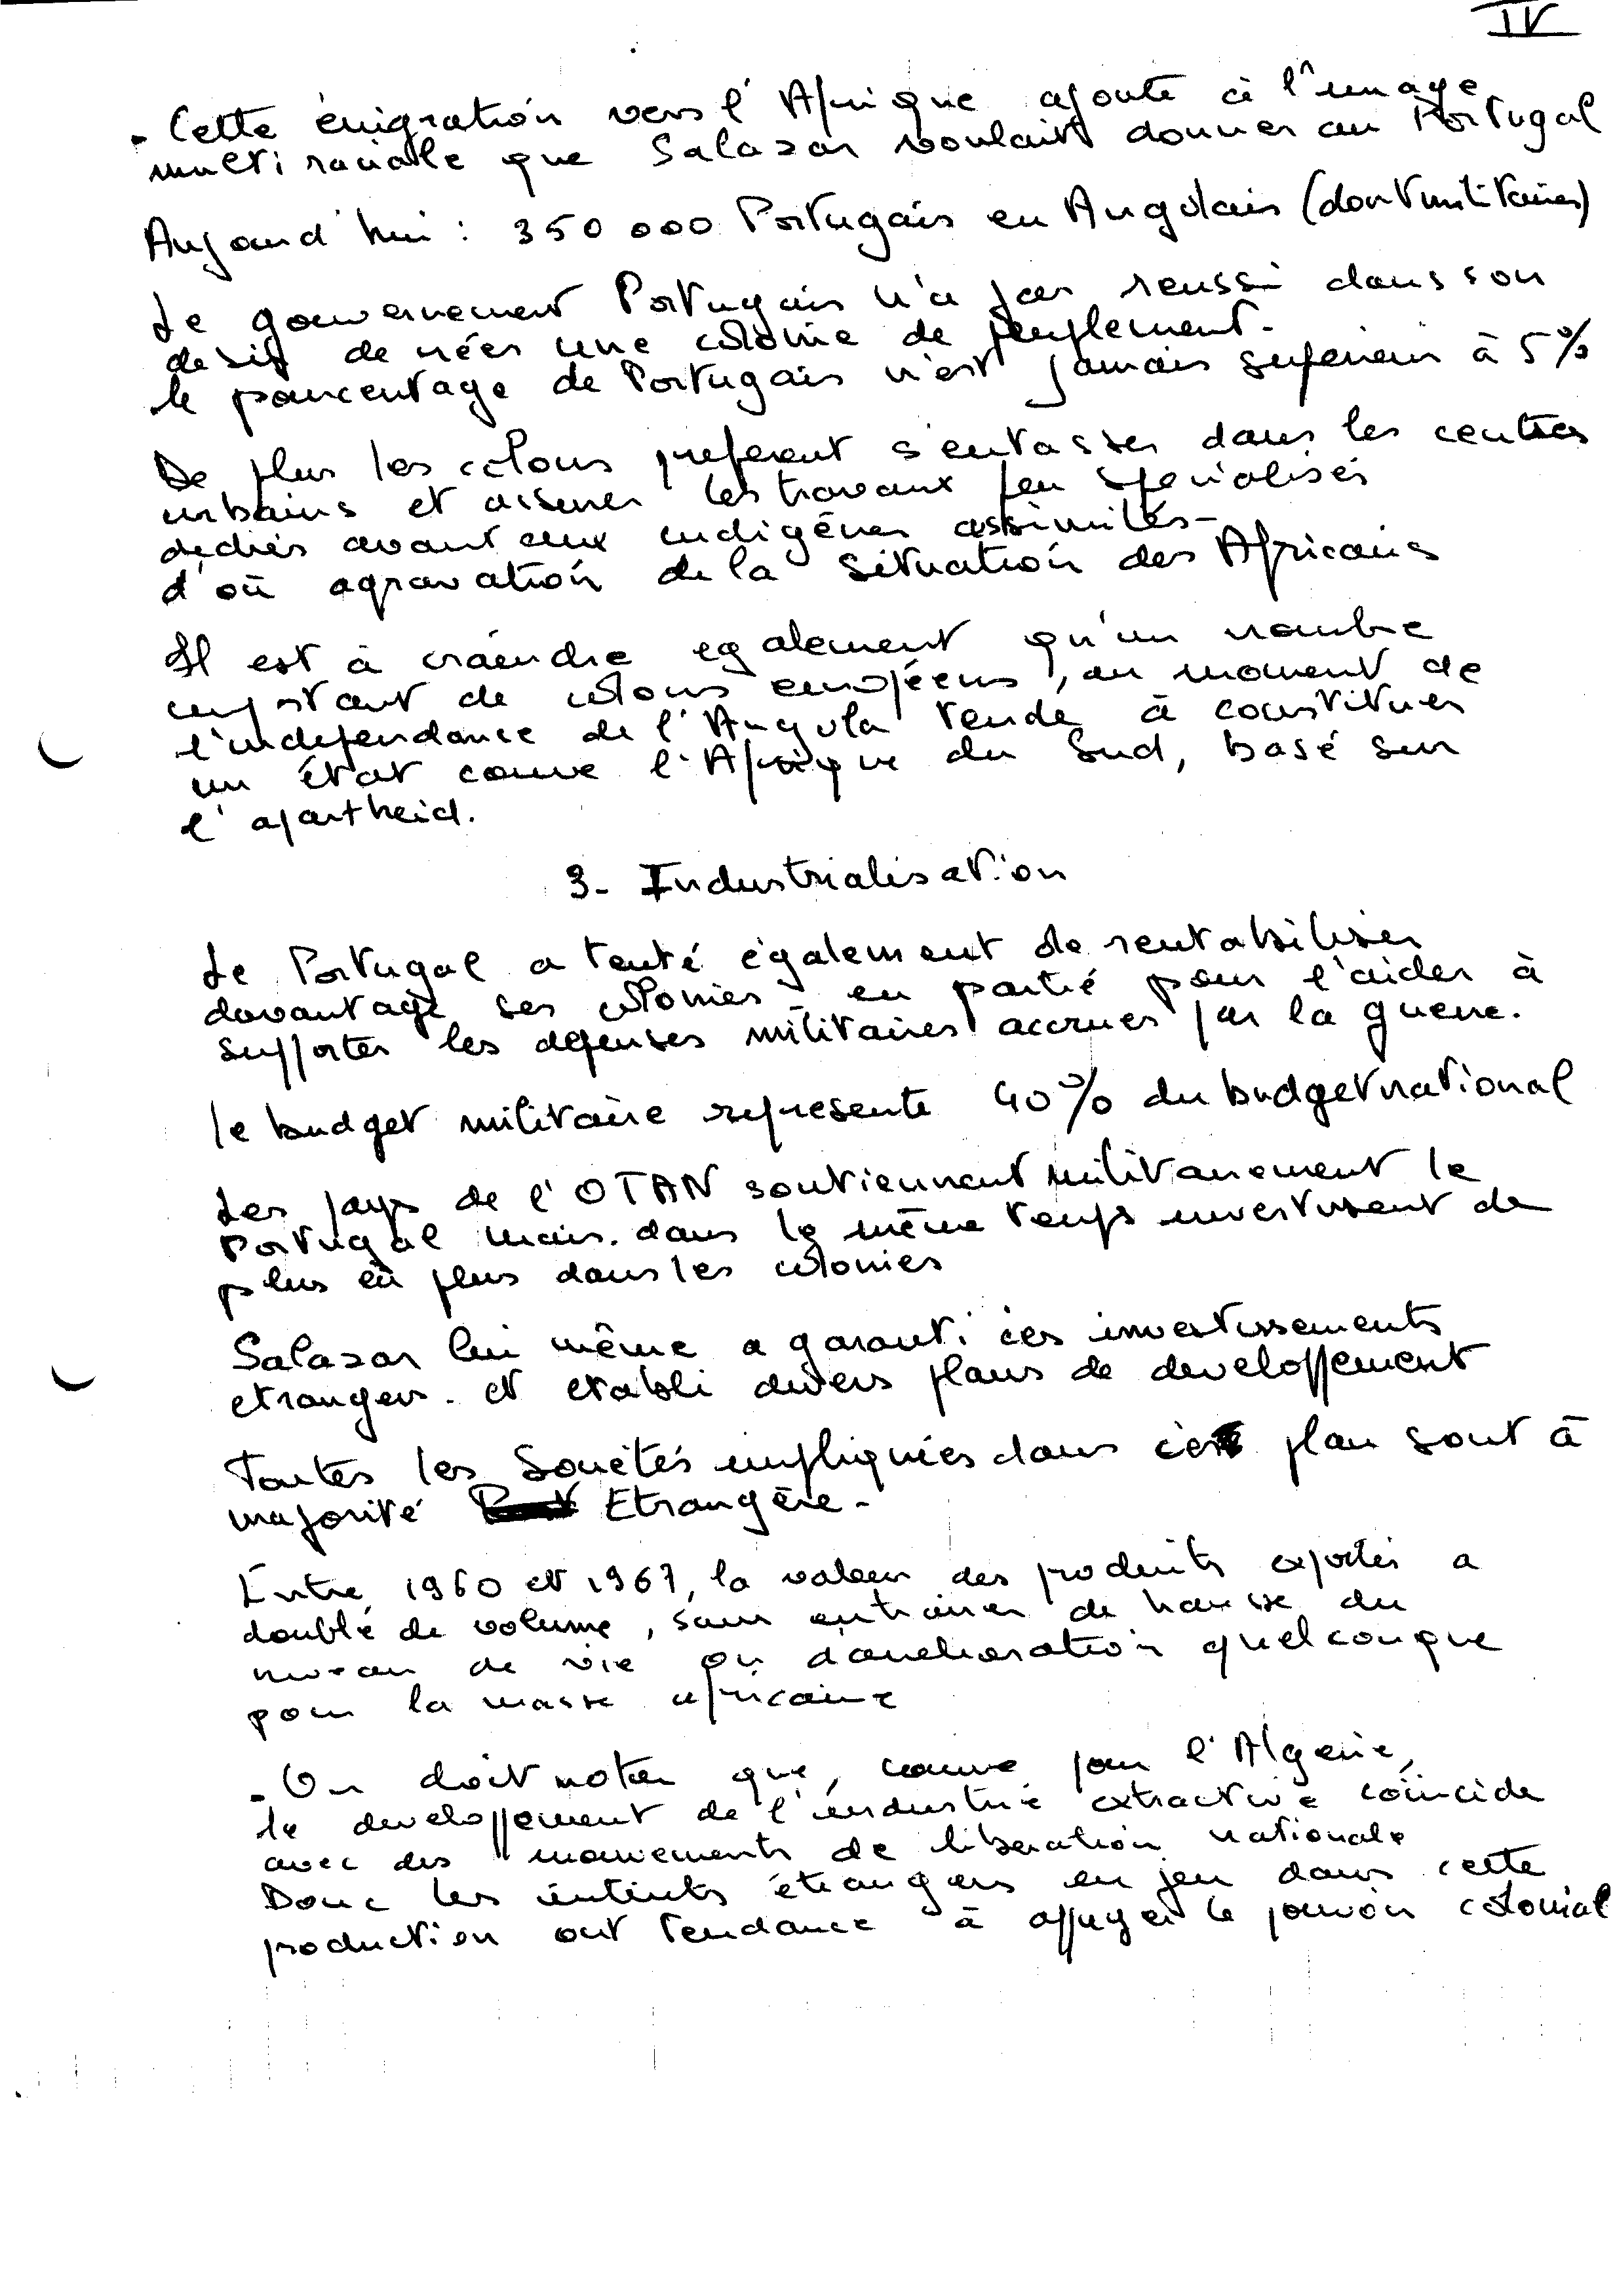 IV
- Cette émigration vers l'Afrique ajoute à l'image
multiraciale que Salazar voulait donner au Portugal
Aujourd'hui : 350 000 Portugais en Angolais (dont militaires)
Le gouvernement Portugais n'a pas reussi dans son
desir de créer une colonie de peuplement -
le pourcentage de Portugais n'est jamais superieur à 5%
De plus les colons preferent s'entasser dans les centres
urbains et assurer les travaux peu spécialisés
dediés avant aux indigènes assimilés -
d'où agravation de la situation des Africains
Il est à craindre egalement qu'un nombre
important de colons européens, au moment de
l'independance de l'Angola tende à constituer
un état comme l'Afrique du Sud, basé sur
l'apartheid.
3 - Industrialisation
Le Portugal a tenté également de rentabiliser
davantage ses colonies - en partie pour l'aider à
supporter les dépenses militaires accrues par la guerre.
le budget militaire represente 40% du budget national
Les pays de l'OTAN soutiennent militairement le
Portugal mais dans le même temps investissent de
plus en plus dans les colonies
Salazar lui même a garanti ces investissements
etrangers - et etabli divers plans de developpement
Toutes les Sociétés impliquées dans ces plan sont à
majorité Etrangère -
Entre 1960 et 1967, la valeur des produits exportés a
doublé de volume, sans entrainer de hausse du
niveau de vie ou d'amelioration quelconque
pour la masse africaine
- On doit noter que, comme pour l'Algerie,
le developpement de l'industrie extractive coïncide
avec des mouvements de liberation nationale
Donc les intérêts étrangers en jeu dans cette
production ont tendance à appuyer le pouvoir colonial